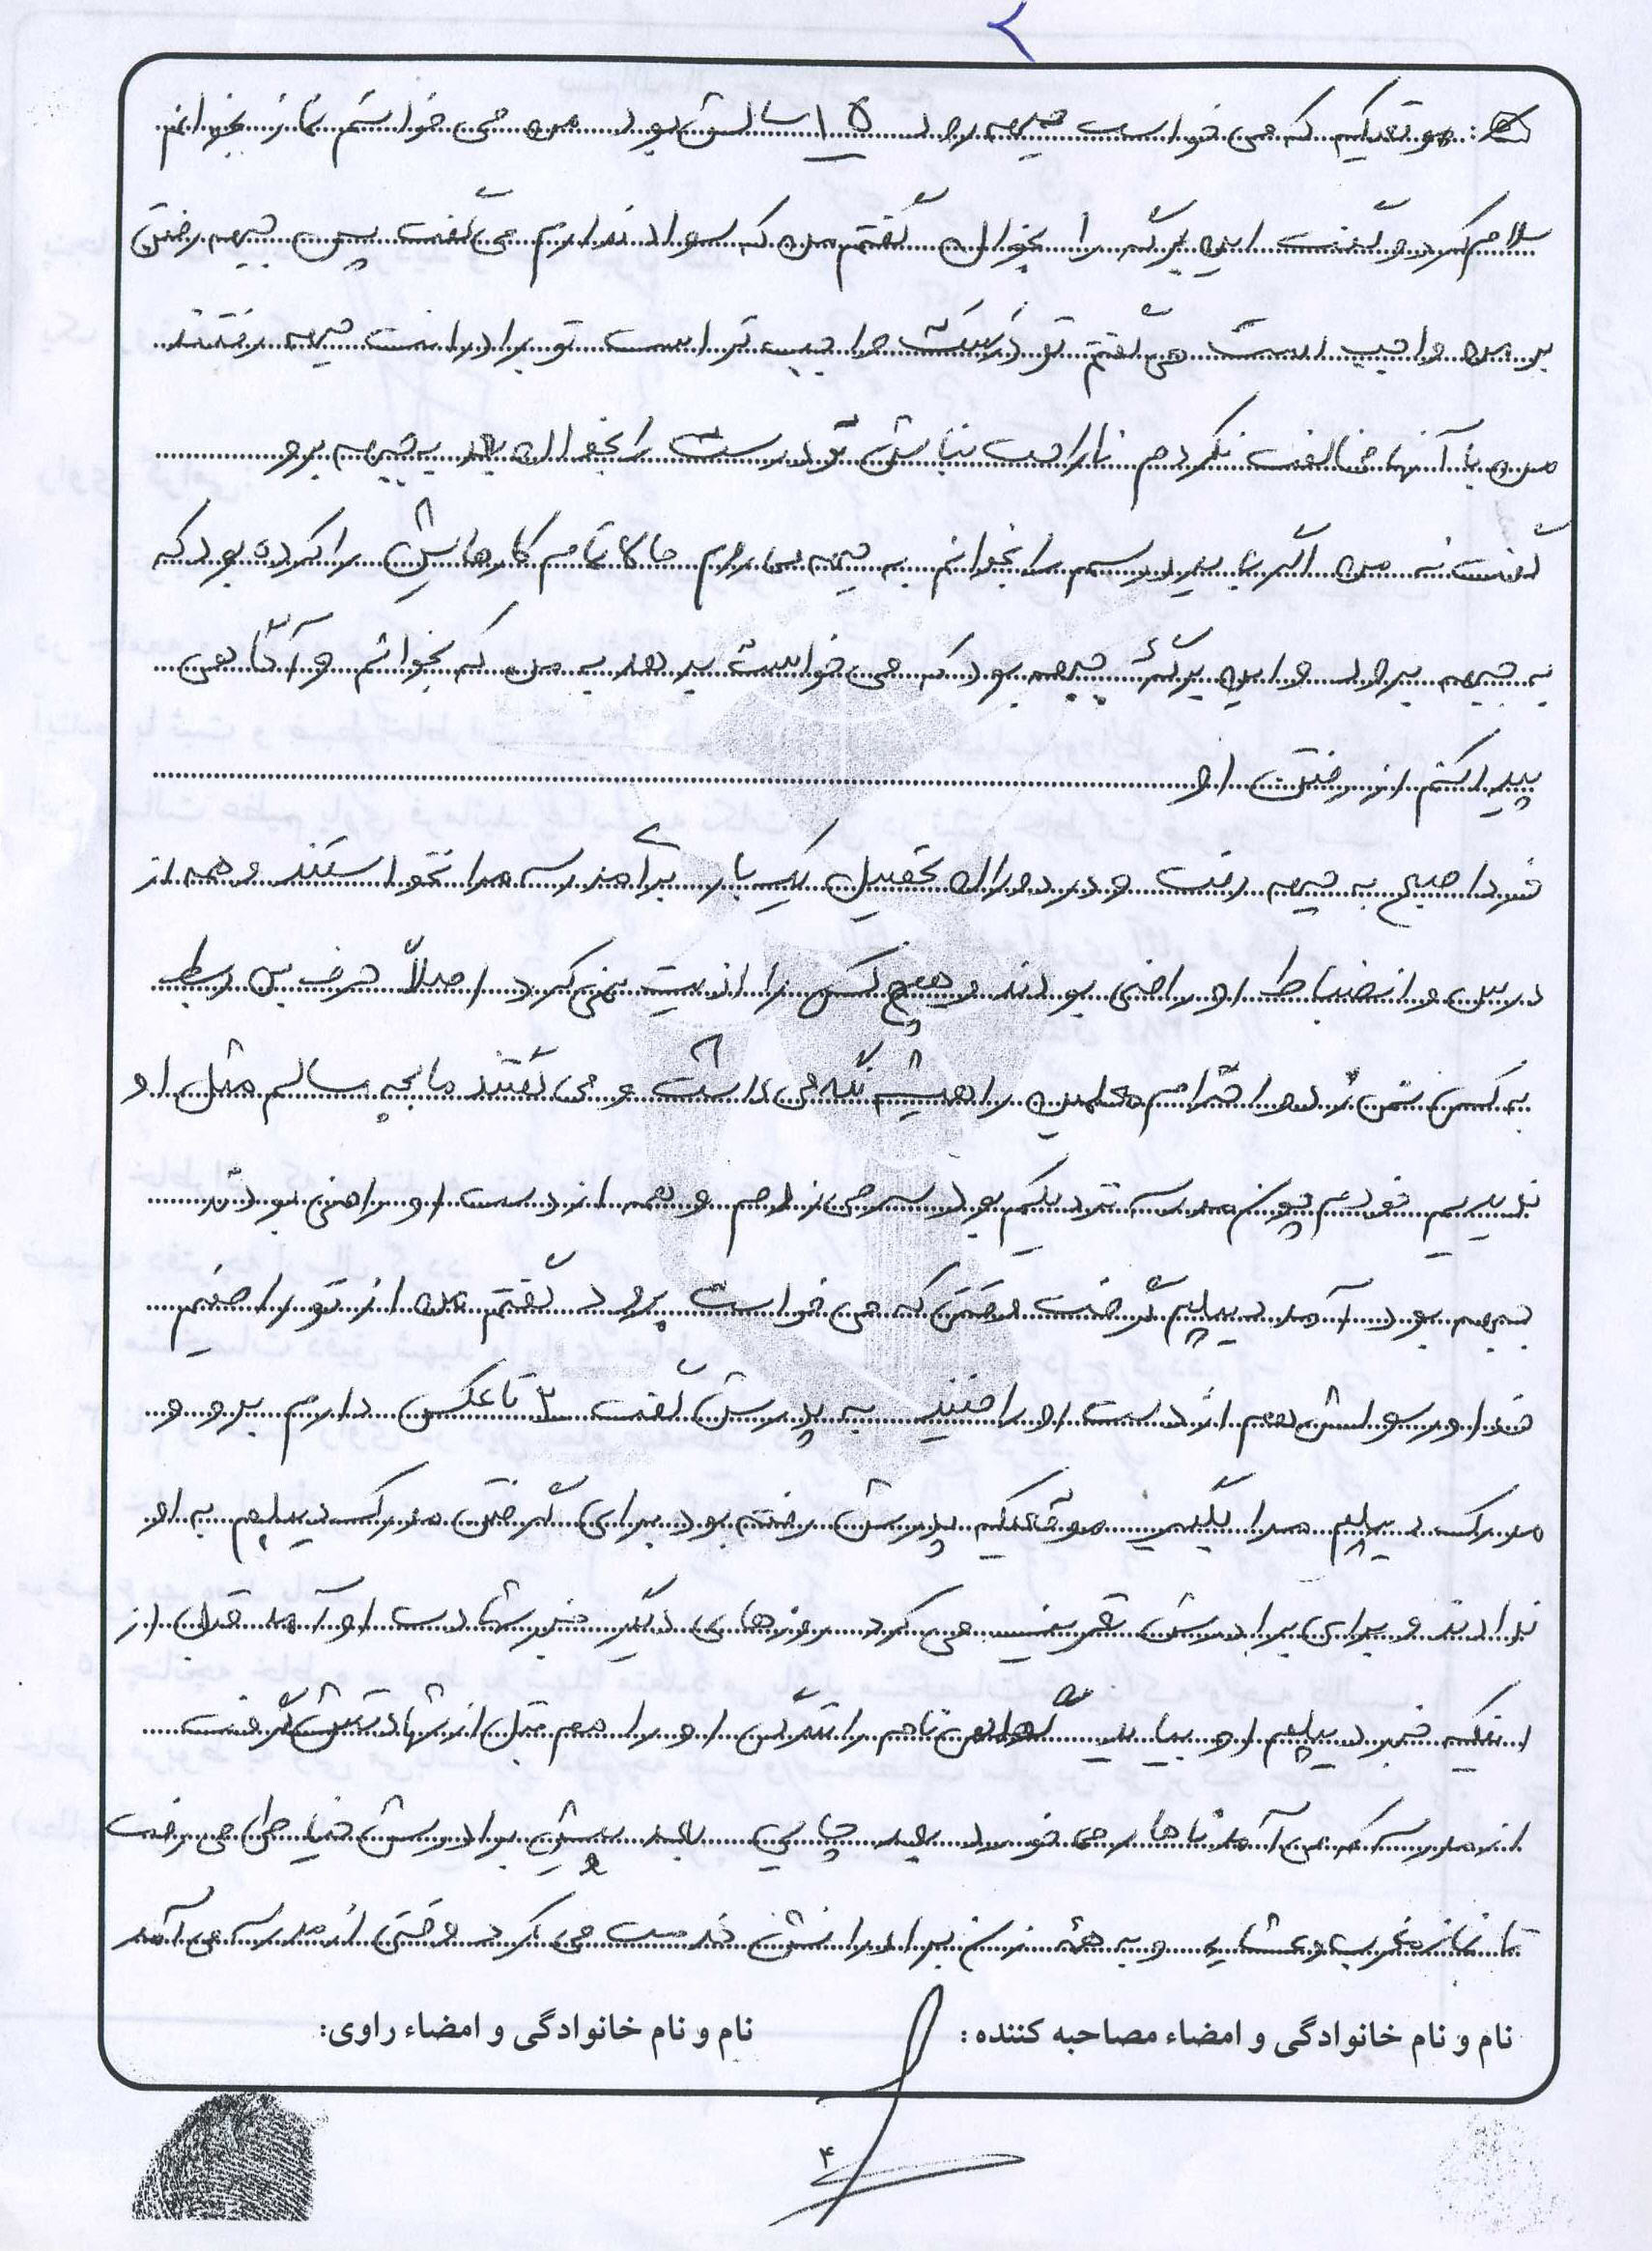 موقعیکه که می خواست جبهه رود ۱۵ سالش بود من می خواستم نماز بخوانم
سلام کرد و گفت این برگه را بخوان گفتم من که سواد ندارم می گفت پس جبهه رفتن
بر من واجب است می گفتم تو درست واجب تر است تو برادرانت جبهه رفتند
من با آنها مخالفت نکردم ناراحت نباش تو درست را بخوان بعد به جبهه برو
گفت نه من اگر باید درسم را بخوانم به جبهه می روم حالا تمام کارهایش را کرده بود که
به جبهه برود و این برگهٔ جبهه بود که می خواست بدهد به من که بخوانم و آگاهی
پیدا کنم از رفتن او
فردا صبح به جبهه رفت و در دوران تحصیل یک بار برا مدرسه مرا نخواستند و همه از
درس و انضباط او راضی بودند و هیچ کس را اذیت نمی کرد اصلاً حرف بی ربط
به کسی نمی زد و احترام معلمین را همیشه نگه می داشت و می گفتند ما بچه سالم مثل او
ندیدیم خودم چون مدرسه نزدیکم بود سر می زدم و همه از دست او راضی بودند
جبهه بود آمد دیپلم گرفت وقتی که می خواست برود گفتم من از تو راضیم
خدا و رسولش هم از دست او راضیند به پدرش گفت ۲ تا عکس دارم برو و
مدرک دیپلم مرا بگیر موقعیکه پدرش رفته بود برای گرفتن مدرک دیپلم به او
ندادند و برای برادرش تعریف می کرد روزهای دیگر خبر شهادت او آمد قبل از
اینکه خبر دیپلم او بیاید گواهی نامه رانندگی او را هم قبل از شهادتش گرفت
از مدرسه که می آمد ناهار می خورد بعد چایی بعد پیش برادرش خیاطی می رفت
تا نماز مغرب و عشاء و به همه زن برادرانش خدمت می کرد وقتی از مدرسه می آمد
نام و نام خانوادگی و امضاء مصاحبه کننده : نام و نام خانوادگی و امضاء راوی:
۴